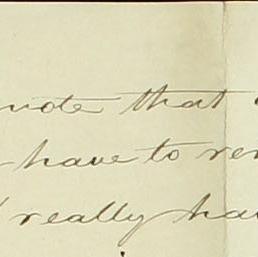 note that
have to ren
really hav